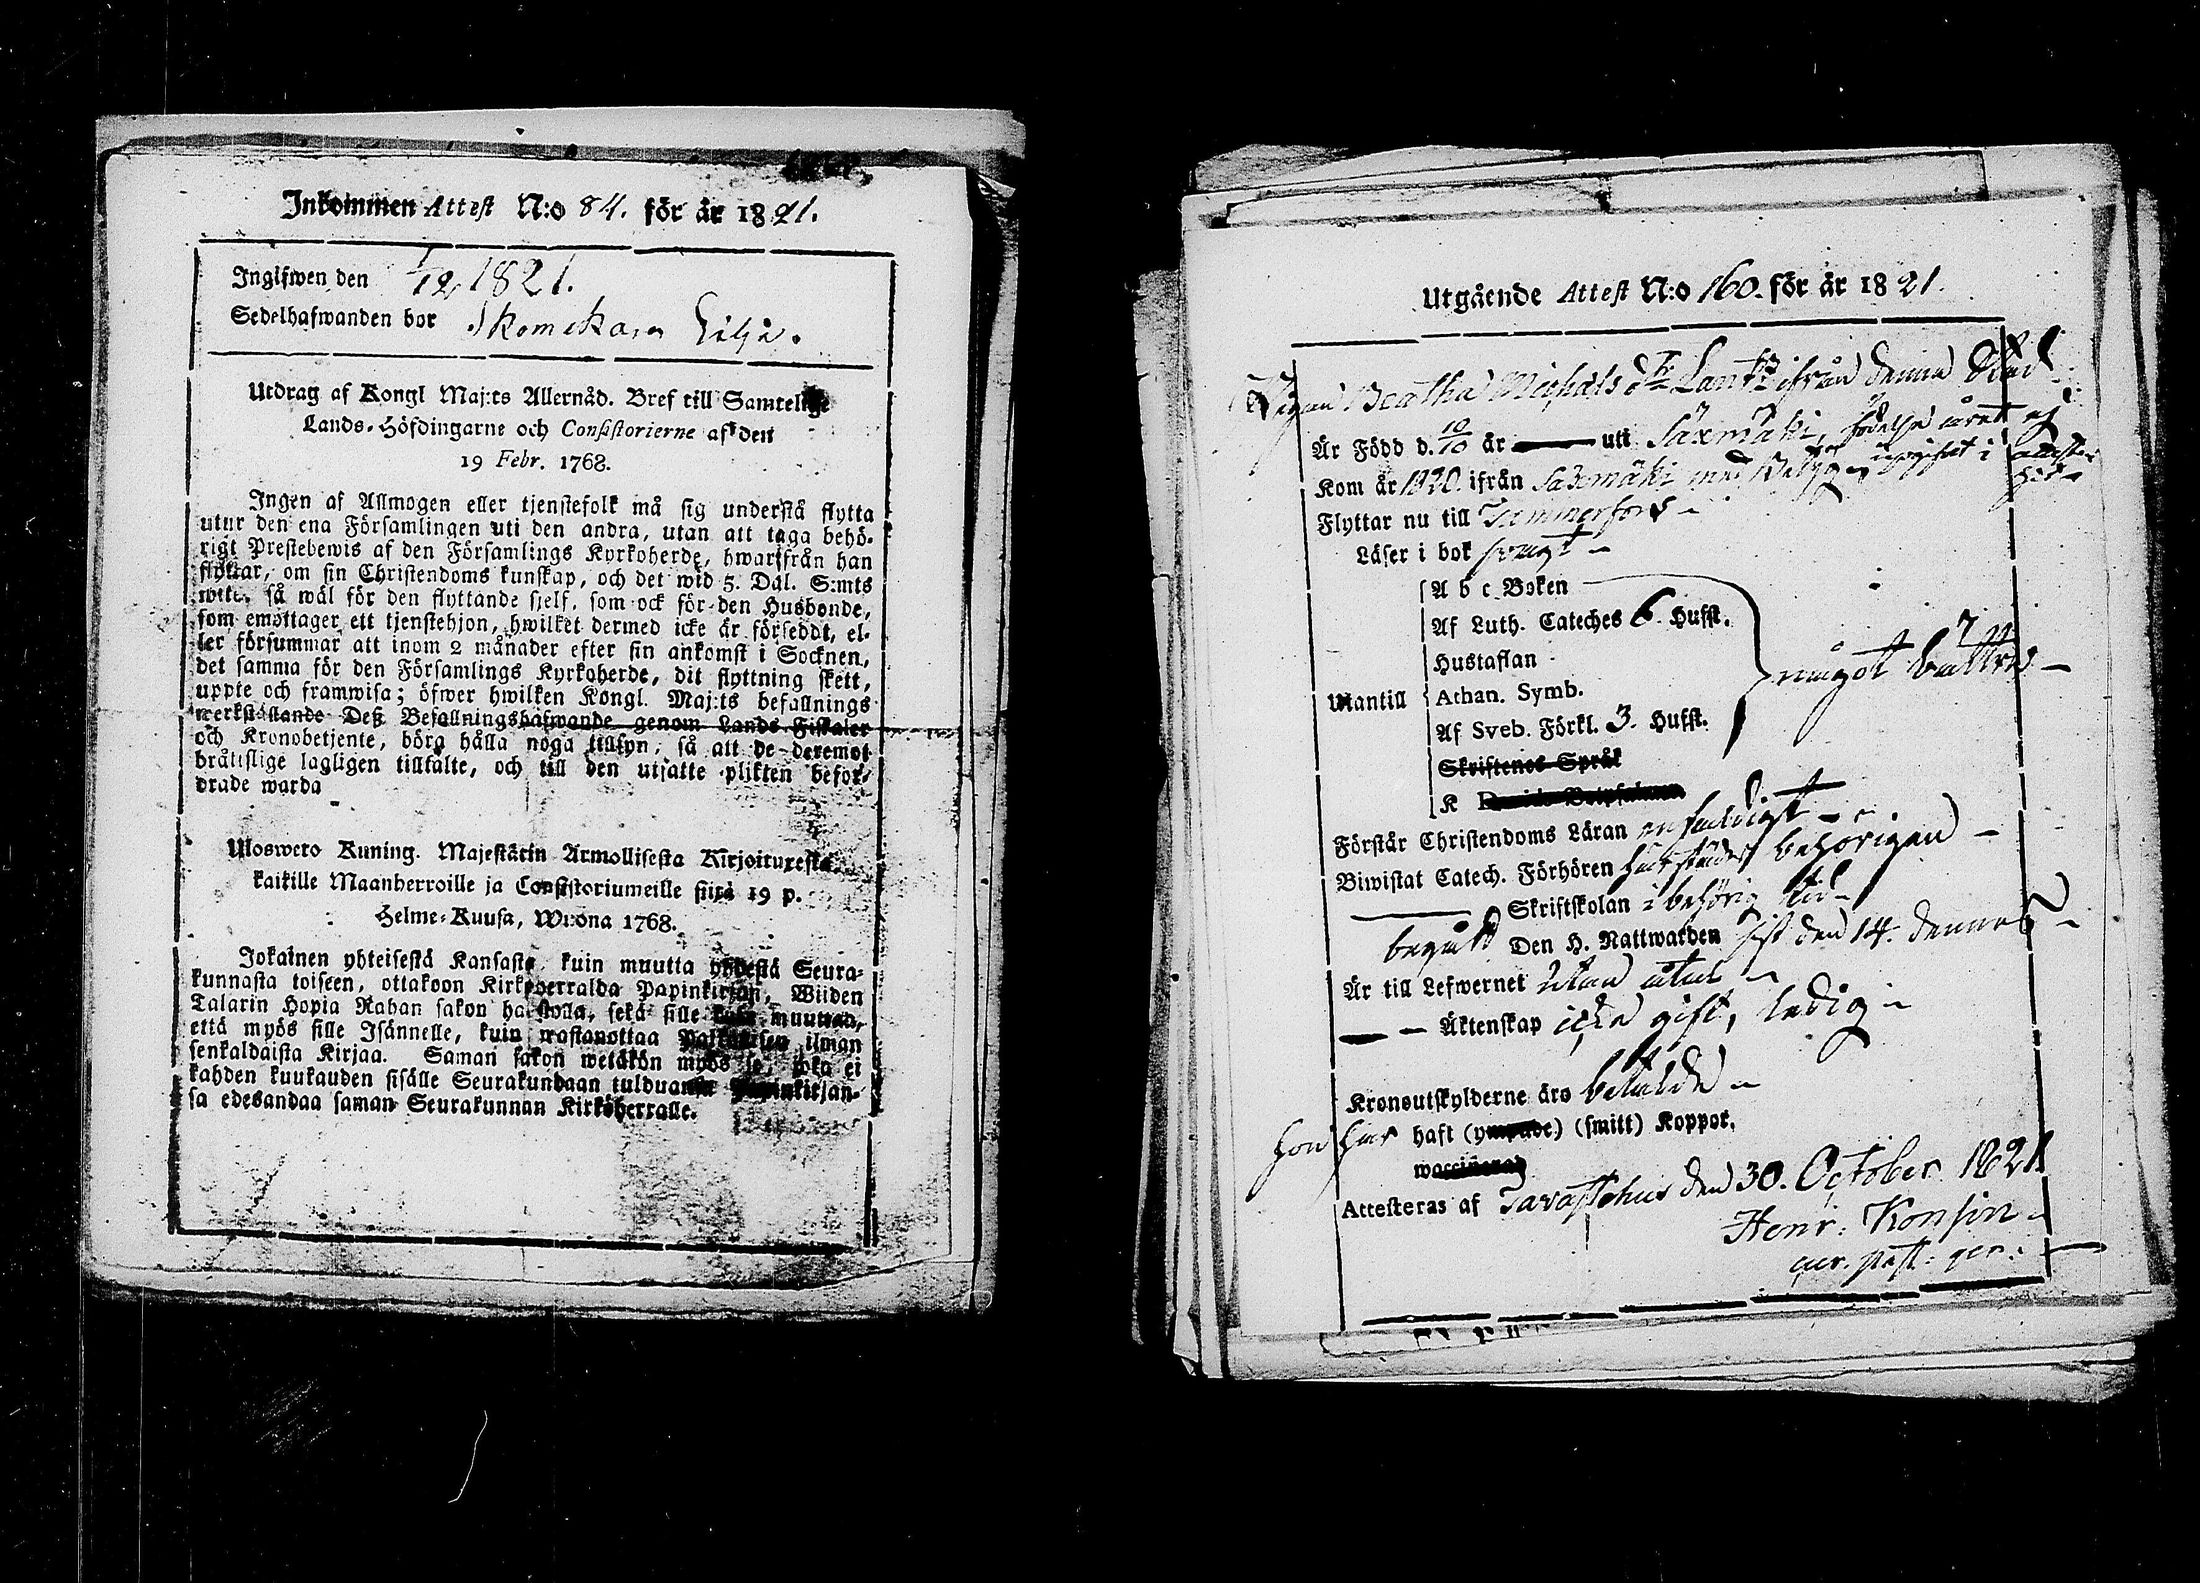 Inkommen Attest N:o 84. för år 1821.
Ingifwen den 1/12 1821.
Sedelhafwanden bor Skomakar Lilja.
Utdrag af Kongl Maj:ts Allernåd. Bref till Samtelige
Lands-Höfdingarne och Consistorierne af den
19 Febr. 1768.
Ingen af Allmogen eller tjenstefolk må sig understå flytta
utur den ena Församlingen uti den andra, utan att taga behö-
rigt Prestebewis af den Församlings Kyrkoherde, hwarifrån han
flyttar, om sin Christendoms kunskap, och det wid 5. Dal. S:mts
wite, så wäl för den flyttande sjelf, som ock för den Husbonde,
som emottager ett tjenstehjon, hwilket dermed icke är försedt, el-
ler försummar att inom 2 månader efter sin ankomst i Socknen,
det samma för den Församlings Kyrkoherde, dit flyttning skett,
uppte och framwisa; öfwer hwilken Kongl. Maj:ts befallnings
werkställande Deß Befallningshafwande genom Lands-Fiskaler
och Kronobetjente, böra hålla noga tillsyn, så att de deremot
bråttslige lagligen tilltalte, och till den utsatte plikten befor-
drade warda
Uloswero Kuning. Majestätin Armollisesta Kirjoituxesta
kaikille Maanherroille ja Consistoriumeille siitä 19 p.
Helme-Kuusa, Wuona 1768.
Jokainen yhteisestä Kansasta, kuin muutta yhdestä Seura-
kunnasta toiseen, ottakoon Kirkoherralda Papinkirjan, Wiiden
Talarin Hopia Rahan sakon haastolla, sekä sille kuin muuttaa,
että myös sille Isännelle, kuin wastanottaa Palkollisen ilman
senkaldaista Kirjaa. Saman sakon wetäkön myös se, joka ei
kahden kuukauden sisälle Seurakundaan tulduansa Papinkirjan-
sa edesandaa saman Seurakunnan Kirköherralle.
Utgående Attest N:o 160. för år 1821.
Pigan Beatha Michels dr Lantz ifrån denna Stad
Är Född d. 10/10 år uti Säxmäki, födelse året ej
Kom år 1820. ifrån Saxmäki med Betyg, uppgifvet i attesten
hit
Flyttar nu till Tammerfors
Läser i bok svagt
A b c Boken
Af Luth. Cateches 6. Hufst.
Hustaflan
Utantill Athan. Symb. något bättre
Af Sveb. Förkl. 3. Hufst.
Skriftenes Språk
K Davids Botpsalmer
Förstår Christendoms Läran enfaldigt
Biwistat Catech. Förhören härstädes behörigen
Skriftskolan i behörig tid
begått Den H. Nattwarden sist den 14. dennes
Är till Lefwernet utan åtal
Äktenskap icke gift, ledig
Kronoutskylderne äro betalde
hon har haft (ympade) (smitt) Koppor.
waccinerad
Attesteras af Tavastehus den 30. October 1821
Henr: Konsin